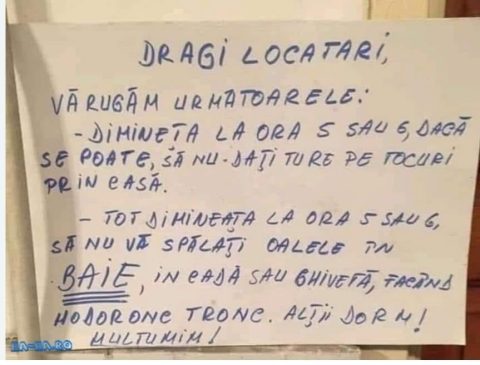 DRAGI LOCATARI,
VĂ RUGĂM URMATOARELE:
- DIMINEȚA LA ORA 5 SAU 6, DACĂ
SE POATE, SĂ NU DAȚI TURE PE TOCURI
PRIN CASĂ.
- TOT DIMINEAȚA LA ORA 5 SAU 6,
SĂ NU VĂ SPĂLAȚI OALELE ÎN
BAIE, IN CADĂ SAU GHIVETĂ, FACÂND
HODORONC TRONC. ALȚII DORM!
MULTUMIM!